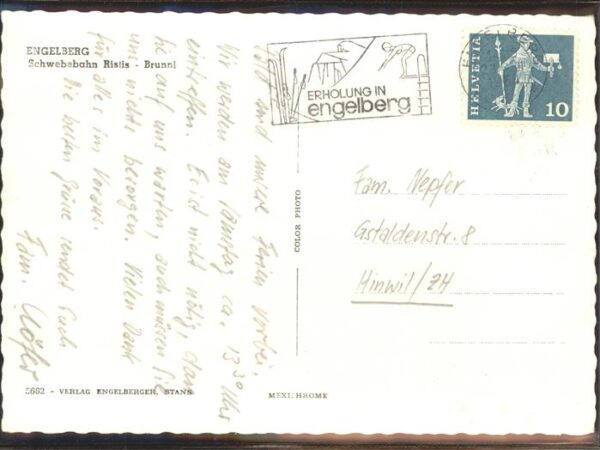 ENGELBERG
Schwebebahn Ristis - Brunni
ERHOLUNG IN
engelberg
HELVETIA
10
sind unsre Ferien vorbei.
Wir werden am Samstag ca. 13³⁰ Uhr
eintreffen. Es ist nicht nötig, dass
Sie auf uns warten, und müssen Sie
uns nichts besorgen. Vielen Dank
für alles im Voraus.
Die besten Grüsse sendet Euch
Fam.
Fam. Nepfer
Gstaldenstr. 8
Hinwil/ZH
COLOR PHOTO
5662 - VERLAG ENGELBERGER, STANS
MEXICHROME